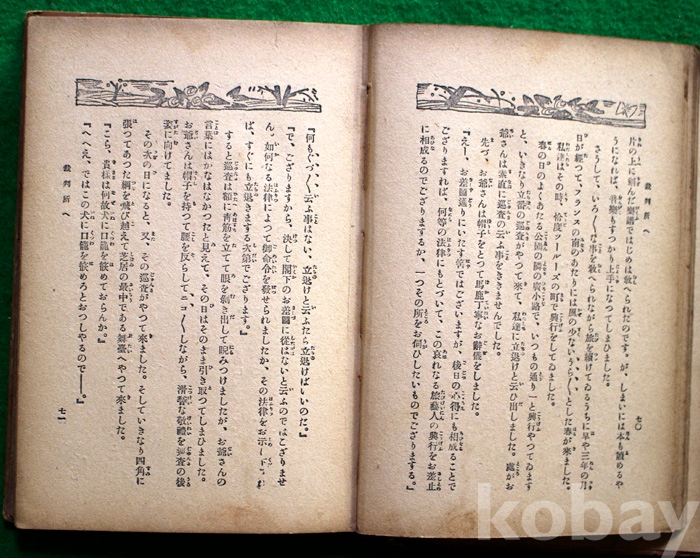 裁判所へ
片の上に刻んだ樂譜ではじめは敎へられたのです。が、しまいには本も讀めるや
うになれば、音樂もすつかり上手になつてしまひました。
さうして、いろ〳〵な事を敎へられながら旅を續けてゐるうちに早や三年の月
日が經つて、フランスの南のあたりには風の少ないうら〳〵とした春が來ました。
私達はその時、恰度ツールーズの町で興行をしてゐました。
春の日のよくあたる公園の隣の廣小路で、いつもの通り一と興行やつてゐます
と、いきなり立番の巡査がやつて來て、私達に立退けと云ひ出しました。處がお
爺さんは素直に巡査の云ふ事をききませんでした。
先づ、お爺さんは帽子をとつて馬鹿丁寧なお辭儀をしました。
『えー、お差圖通りにいたす筈ではございますが、後日の心得にも相成ることで
ござりますれば、何等の法律にもとづいて、この哀れなる旅藝人の興行をお差止
に相成るのでござりまするか、一つその所をお伺ひしたいものでござりまする。』
七〇
『何もぐづ〳〵云ふ事はない、立退けと云ふたら立退けばいいのだ。』
『で、ござりますから、決して閣下のお差圖に從はないと云ふのではこざりませ
ん。如何なる法律によつて御命令を發せられましたか、その法律をお示し下
ば、すぐにも立退きまする次第でござります。』
すると巡査は額に靑筋を立てて眼を剝き出して睨みつけましたが、お爺さんの
言葉にはかなはなかつたと見えて、その日はそのまま引き取つてしまひました。
お爺さんは帽子を持つて腰を反らしてニコ〳〵しながら、滑稽な敬禮を巡査の後
姿に向けてました。
その次の日になると、又、その巡査がやつて來ました。そしていきなり四角に
張つてあつた綱を飛び越えて芝居の最中である舞臺へやつて來ました。
『こら、貴樣は何故犬に口籠を嵌めておらんか。』
『へへえ、ではこの犬に口籠を嵌めろとおつしやるので――。』
裁判所へ
七一
kobay